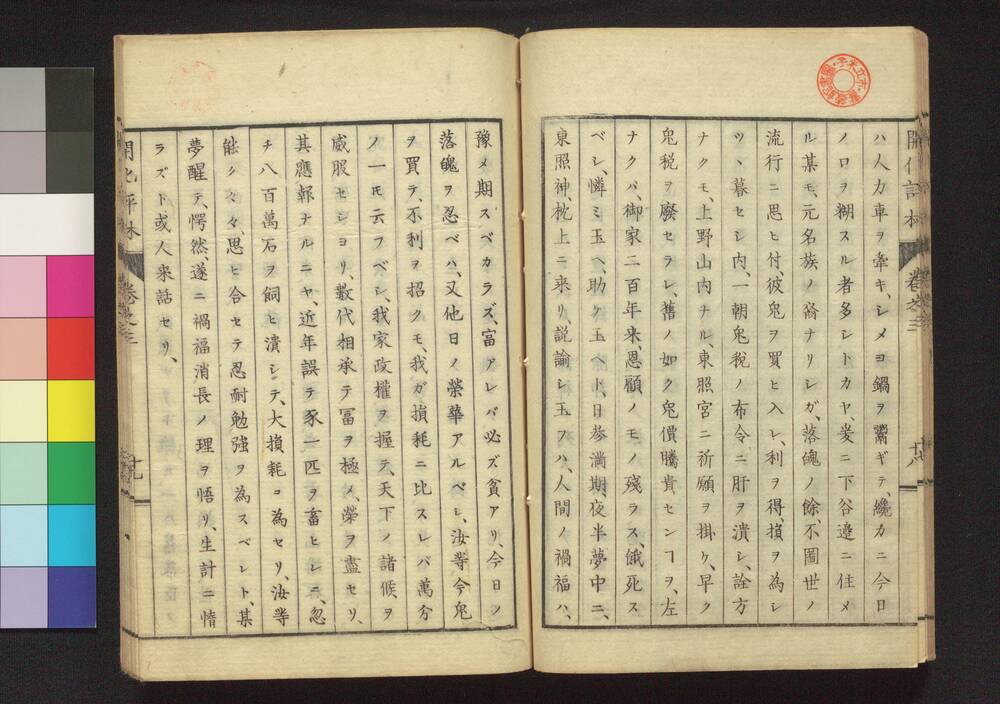 開化評林 卷之三 十八
ハ人力車ヲ牽キ、シメヨ鍋ヲ鬻ギテ、纔カニ今日
ノ口ヲ糊スル者多シトカヤ、爰ニ下谷邉ニ住メ
ル某モ、元名族ノ裔ナリシガ、落魄ノ餘、不圖世ノ
流行ニ思ヒ付、彼兎ヲ買ヒ入レ、利ヲ得、損ヲ為シ
ツヽ暮セシ内、一朝兎税ノ布令ニ肝ヲ潰シ、詮方
ナクモ、上野山内ナル、東照宮ニ祈願ヲ掛ケ、早ク
兎税ヲ廢セラレ、舊ノ如ク兎價騰貴センヿヲ、左
ナクバ、御家二百年来、恩顧ノモノ殘ラス、餓死ス
ベシ、憐ミ玉ヘ、助ケ玉ヘト、日参満期、夜半夢中ニ、
東照神、枕上ニ来リ、説諭シ玉フハ、人間ノ禍福ハ、
豫メ期スベカラズ、富アレバ必ズ貧アリ、今日ノ
落魄ヲ忍ベハ、又他日ノ榮華アルベシ、汝等今兎
ヲ買テ、不利ヲ招クモ、我ガ損耗ニ比スレバ萬分
ノ一モ云フベシ、我家政權ヲ握テ、天下ノ諸候ヲ
威服セシヨリ、數代相承テ冨ヲ極メ、榮ヲ盡セリ、
其應報ナルニヤ、近年誤テ豕一匹ヲ畜ヒシニ、忽
チ八百萬石ヲ飼ヒ潰シテ、大損耗ヲ為セリ、汝等
能ク々々、思ヒ合セテ忍耐勉強ヲ為スベシト、某
夢醒テ、愕然、遂ニ禍福消長ノ理ヲ悟リ、生計ニ惰
ラズト或人来話セリ、
開化評林 卷之三